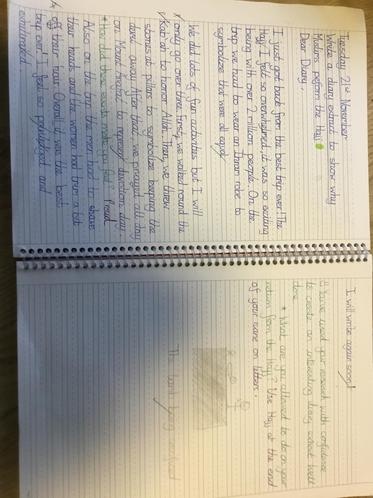 Tuesday 21st November
Write a diary extract to show why
Muslims perform the Hajj
Dear Diary
I just got back from the best trip ever! The
Hajj. I felt so overwhelmed, it was so exciting
being with over 2 million people. On the
trip we had to wear an Ihram robe to
symbolize that were all equal.
We did lots of fun activities but I will
only go over three. First, we walked round the
Kab'ah to honor Allah. Then, we threw
stones at pillars to symbolize keeping the
devil away. After that we prayed all day
on Mount Arafat to represent devotion day.
* How did these events make you feel? Proud
Also on the trip the men had to shave
their heads and the women had trim a bit
off their hair. Overall it was the best
trip ever. I feel so privileged and
I will write again soon!
have used your research with confidence
to create an interesting diary extract. Well
done
* What are you allowed to do on your
return from the Hajj? Use Hajj at the end
of your name on letters.
The
being